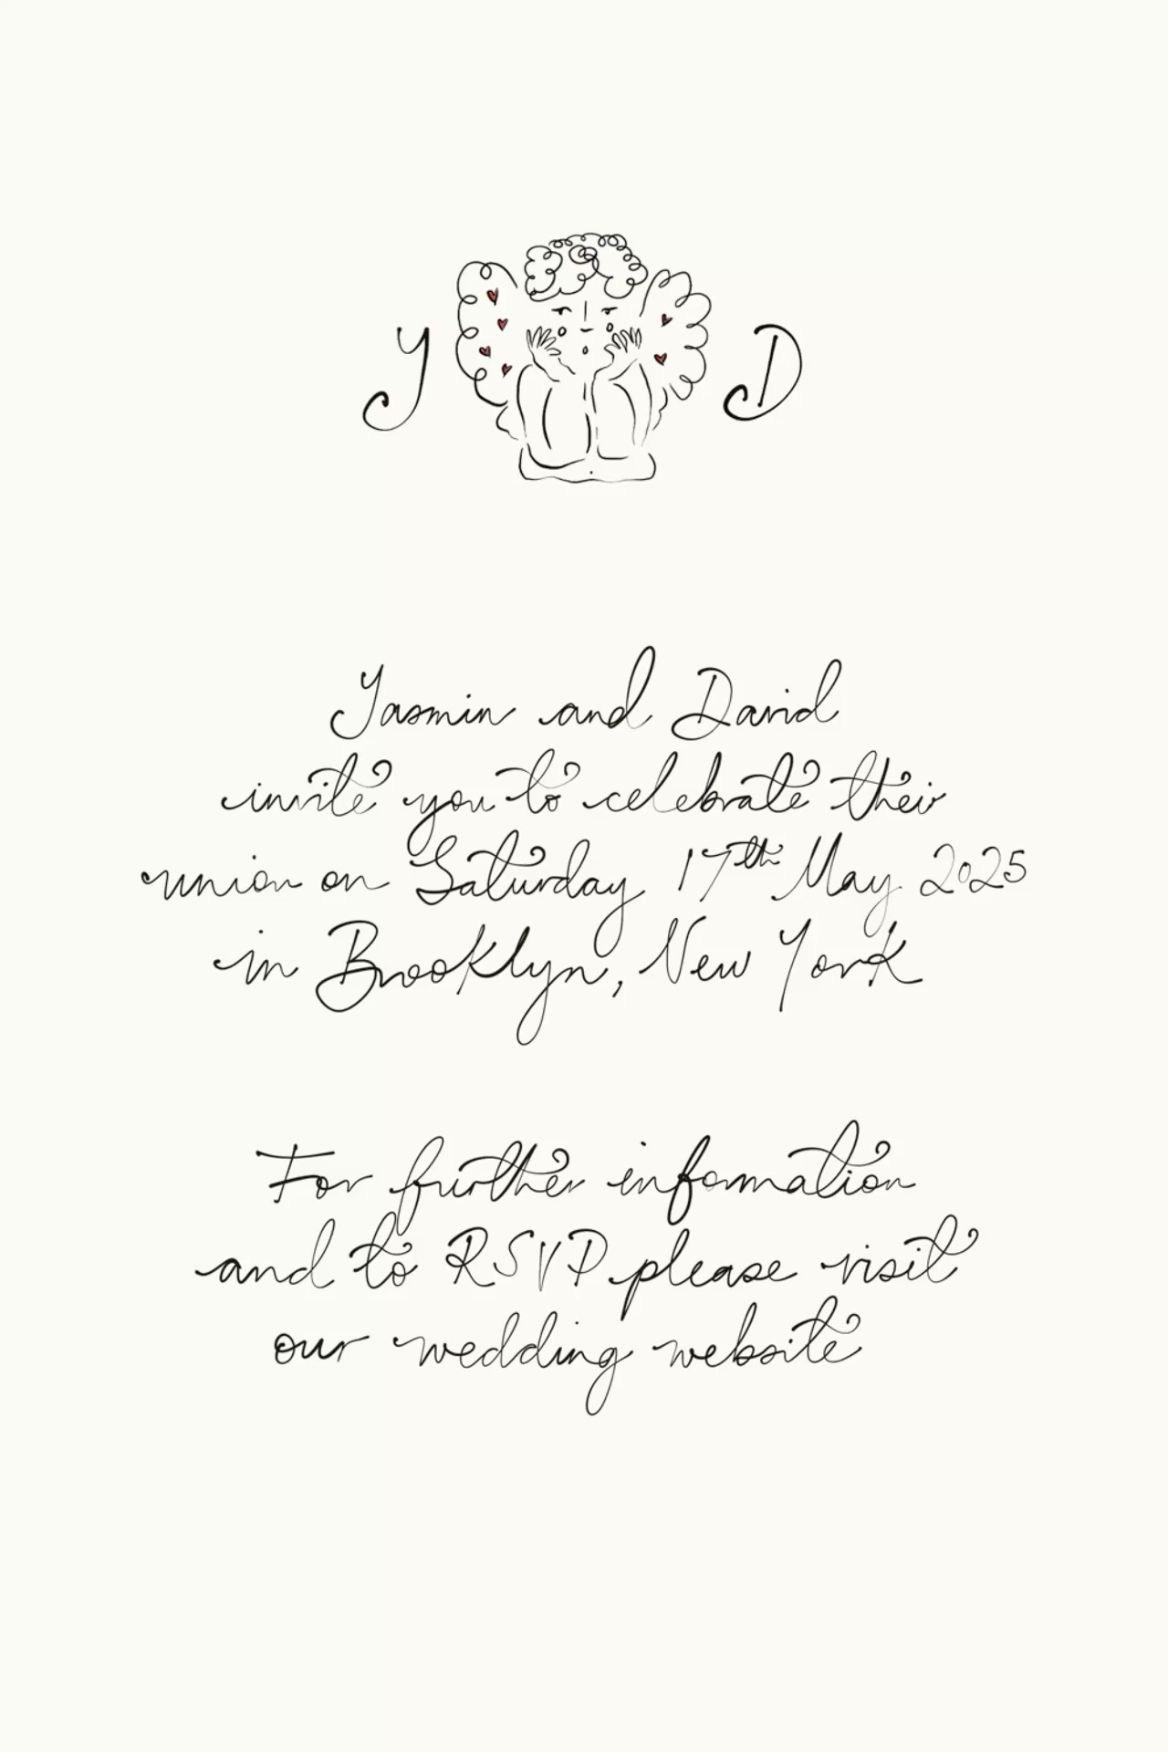 Y D
Yasmin and David
invite you to celebrate their
union on Saturday 17th May 2025
in Brooklyn, New York
For further information
and to RSVP please visit
our wedding website